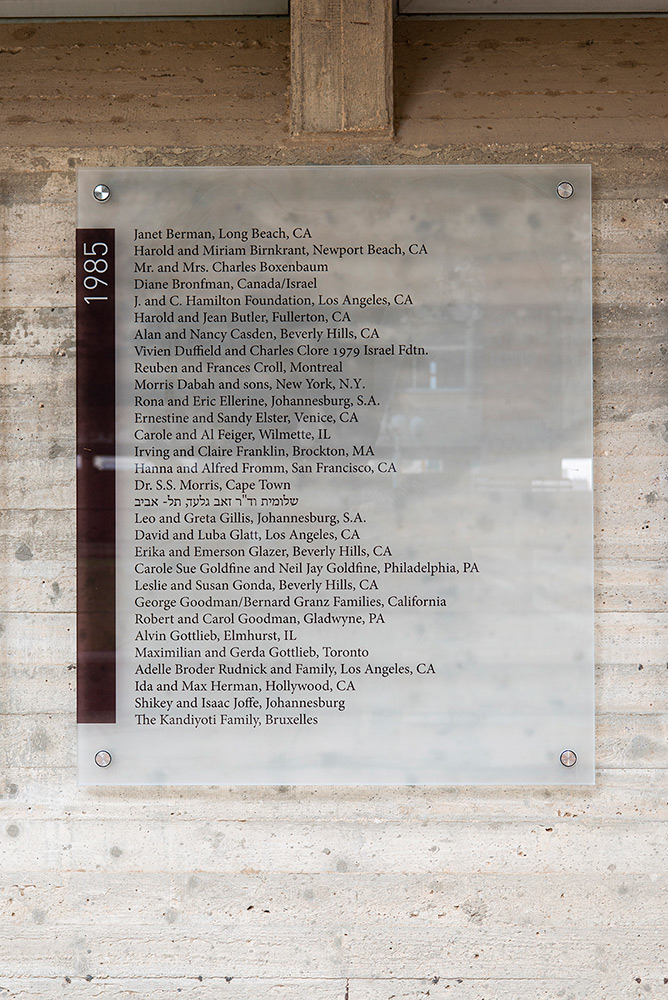 1985
Janet Berman, Long Beach, CA
Harold and Miriam Birnkrant, Newport Beach, CA
Mr. and Mrs. Charles Boxenbaum
Diane Bronfman, Canada/Israel
J. and C. Hamilton Foundation, Los Angeles, CA
Harold and Jean Butler, Fullerton, CA
Alan and Nancy Casden, Beverly Hills, CA
Vivien Duffield and Charles Clore 1979 Israel Fdtn.
Reuben and Frances Croll, Montreal
Morris Dabah and sons, New York, N.Y.
Rona and Eric Ellerine, Johannesburg, S.A.
Ernestine and Sandy Elster, Venice, CA
Carole and Al Feiger, Wilmette, IL
Irving and Claire Franklin, Brockton, MA
Hanna and Alfred Fromm, San Francisco, CA
Dr. S.S. Morris, Cape Town
שלומית וד"ר זאב גלעד, תל- אביב
Leo and Greta Gillis, Johannesburg, S.A.
David and Luba Glatt, Los Angeles, CA
Erika and Emerson Glazer, Beverly Hills, CA
Carole Sue Goldfine and Neil Jay Goldfine, Philadelphia, PA
Leslie and Susan Gonda, Beverly Hills, CA
George Goodman/Bernard Granz Families, California
Robert and Carol Goodman, Gladwyne, PA
Alvin Gottlieb, Elmhurst, IL
Maximilian and Gerda Gottlieb, Toronto
Adelle Broder Rudnick and Family, Los Angeles, CA
Ida and Max Herman, Hollywood, CA
Shikey and Isaac Joffe, Johannesburg
The Kandiyoti Family, Bruxelles